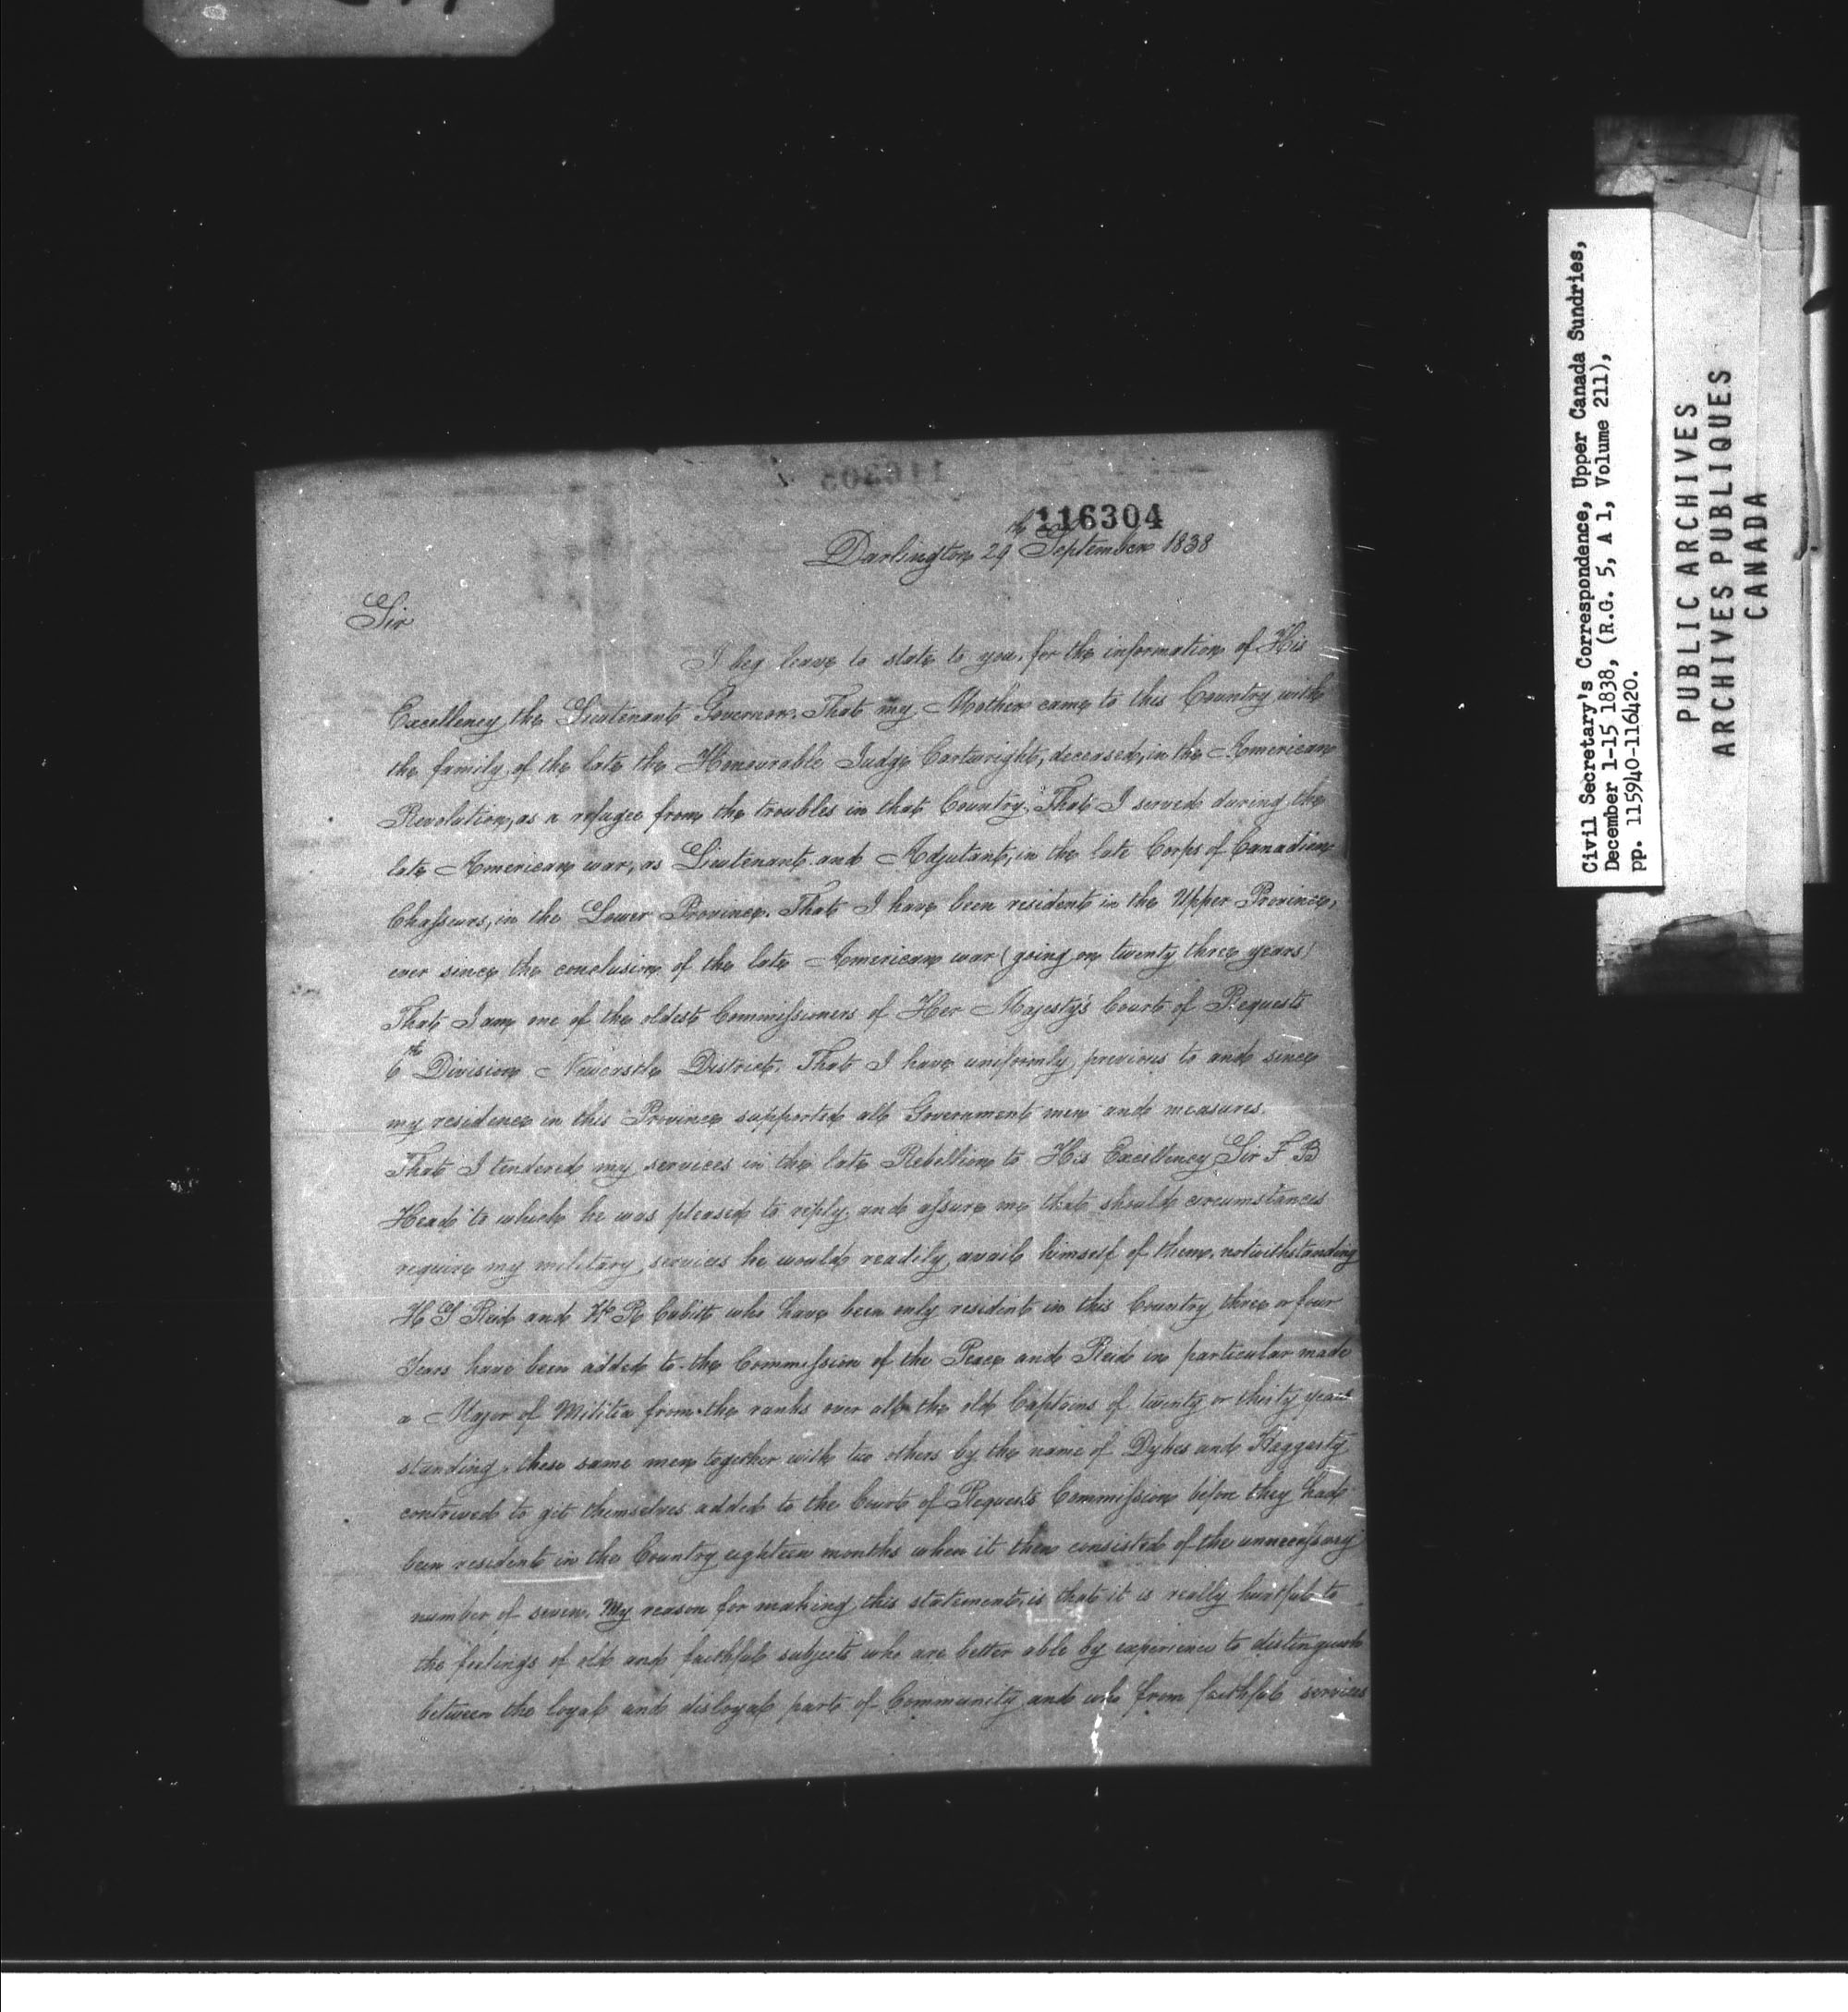 116304
Darlington 29th September 1838
Sir
I beg leave to state to you, for the information of His
Excellency the Lieutenant Governor. That my Mother came to this Country with
the family of the late the Honourable Judge Cartwright, deceased, in the American
Revolution, as a refugee from the troubles in that Country. That I served during the
late American war, as Lieutenant and Adjutant, in the late Corps of Canadian
Chasseurs, in the Lower Province. That I have been resident in the Upper Province,
ever since the conclusion of the late American war (going on twenty three years)
That I am one of the oldest Commissioners of Her Majesty's Court of Requests
6th Division Newcastle District. That I have uniformly previous to and since
my residence in this Province supported all Government men and measures.
That I tendered my services in the late Rebellion to His Excellency Sir F B
Head to which he was pleased to reply and assure me that should circumstances
require my military services he would readily avail himself of them. notwithstanding
H S Reid and R Cubitt who have been only resident in this Country three or four
Years have been added to the Commission of the Peace and Reid in particular made
a Major of Militia from the ranks over all the old Captains of twenty or thirty years
standing, these same men together with two others by the name of Dykes and Heggerty
contrived to get themselves added to the Court of Requests Commission before they had
been resident in the Country eighteen months when it then consisted of the unnecessary
number of seven. My reason for making this statement, is that it is really hurtful to
the feelings of old and faithful subjects who are better able by experience to distinguish
between the loyal and disloyal part of Community and who from faithful services
Civil Secretary's Correspondence, Upper Canada Sundries,
December 1-15 1838, (R.G. 5, A 1, Volume 211),
pp. 115940-116420.
PUBLIC ARCHIVES
ARCHIVES PUBLIQUES
CANADA